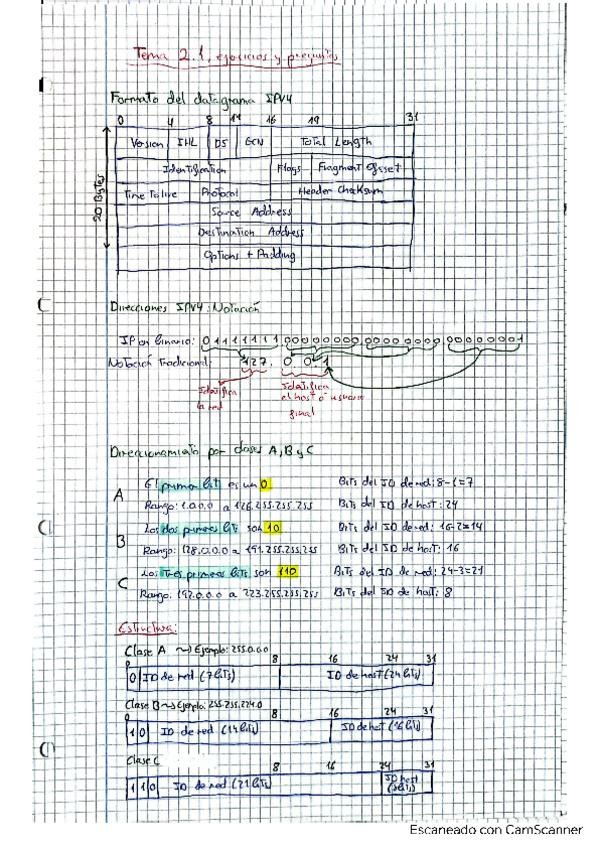 Tema 2.1, ejercicios y preguntas
Formato del datagrama IPV4
0 4 8 14 16 19 31
Version IHL DS ECN Total Length
Identification Flags Fragment Offset
20 Bytes
Time To live Protocol Header Checksum
Source Address
Destination Address
Options + Padding
Direcciones IPV4: Notación
IP en binario: 01111111 00000000 00000000 00000001
Notación Tradicional: 127. 0 0. 1
Identifica la red
Identifica el host o usuario final
Direccionamiento por clases A, B y C
A
El primer bit es un 0. Bits del ID de red: 8-1=7
Rango: 1.0.0.0 a 126.255.255.255 Bits del ID de host: 24
B
Los dos primeros bits son 10 Bits del ID de red: 16-2=14
Rango: 128.0.0.0 a 191.255.255.255 Bits del ID de host: 16
C
Los tres primeros bits son 110 Bits del ID de red: 24-3=21
Rango: 192.0.0.0 a 223.255.255.255 Bits del ID de host: 8
Estructura:
Clase A ~> Ejemplo: 255.0.0.0
0 8 16 24 31
0 ID de red (7 bits) ID de host (24 bits)
Clase B ~> Ejemplo: 255.255.224.0
8 16 24 31
1 0 ID de red (14 bits) ID de host (16 bits)
Clase C
8 16 24 31
1 1 0 ID de red (21 bits) ID host (8 bits)
Escaneado con CamScanner